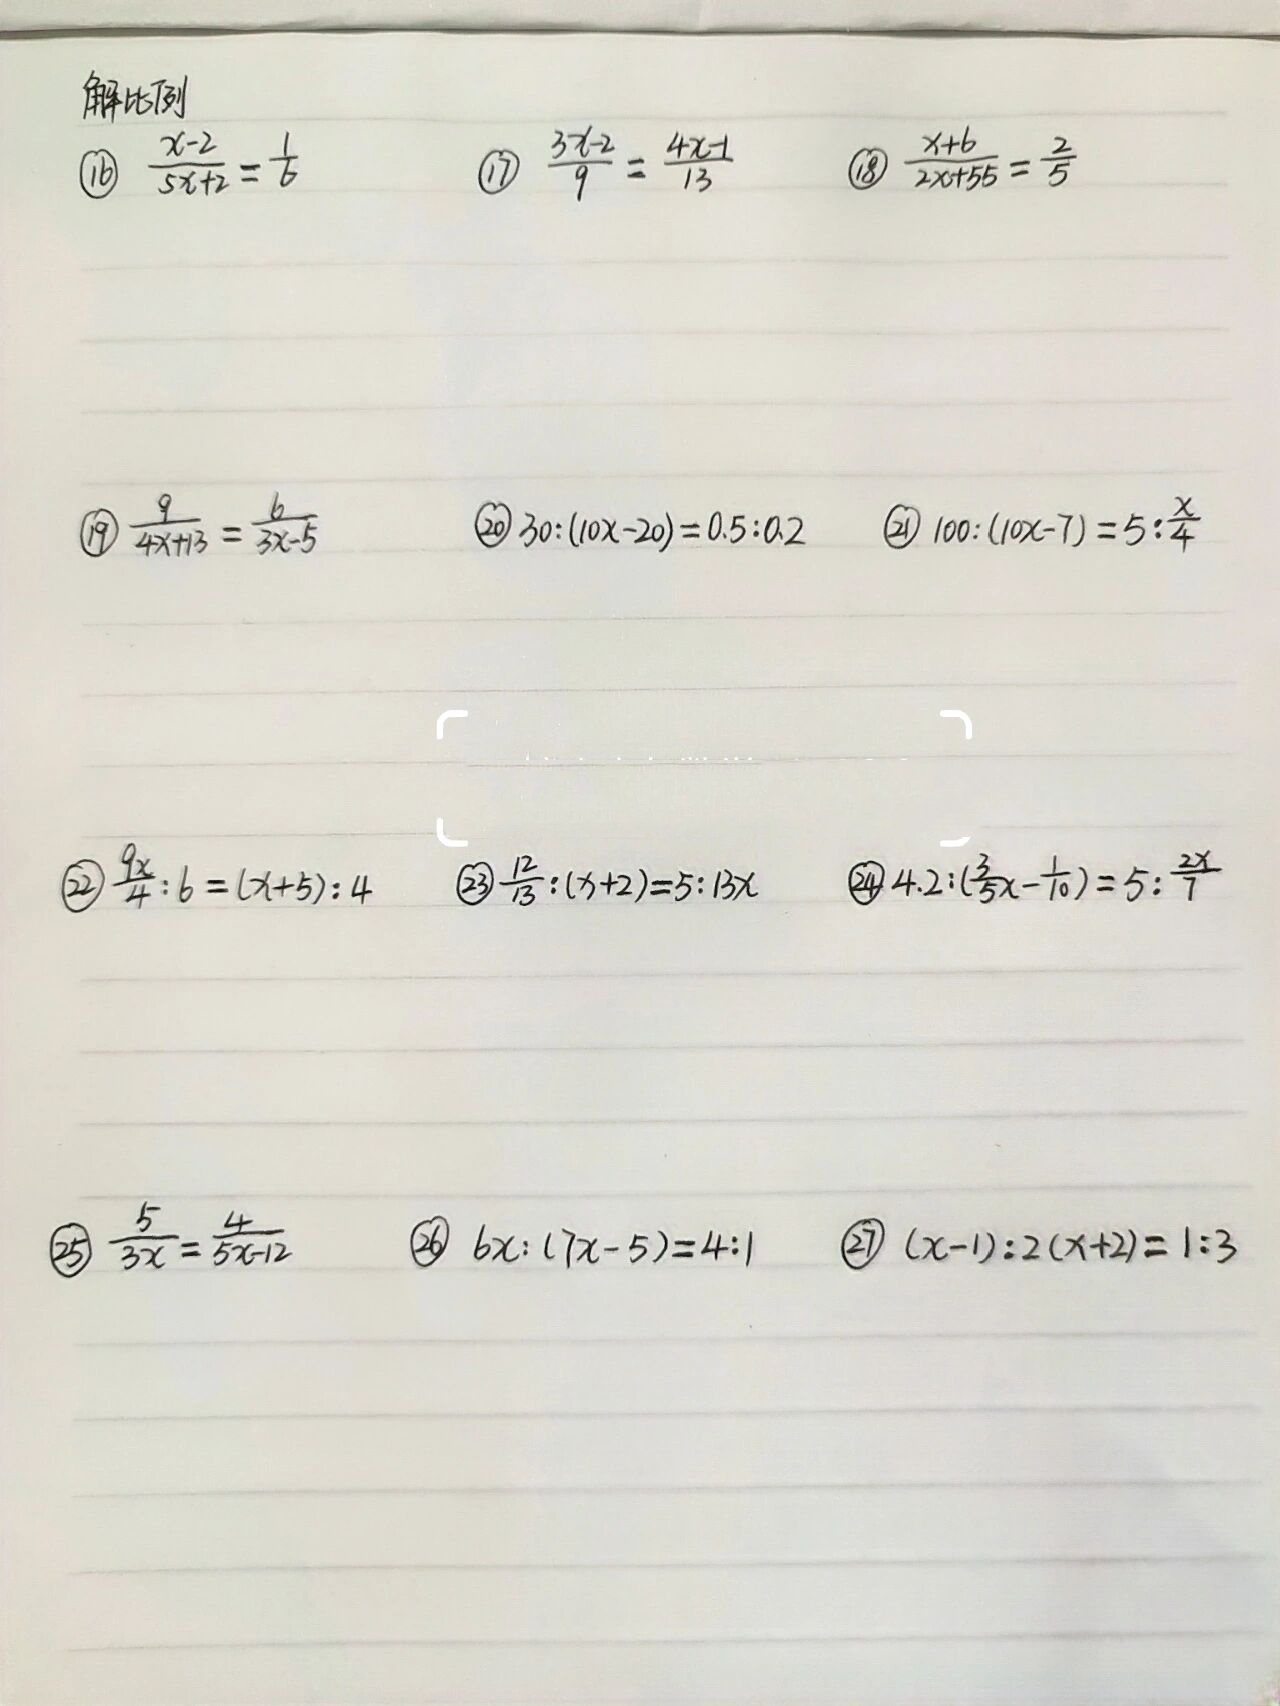 解比例
⑯ (x-2)/(5x+2) = 1/6 ⑰ (3x-2)/9 = (4x-1)/13 ⑱ (x+6)/(2x+55) = 2/5
⑲ 9/(4x+13) = 6/(3x-5) ⑳ 30:(10x-20)=0.5:0.2 ㉑ 100:(10x-7)=5:x/4
㉒ 9x/4:6=(x+5):4 ㉓ 12/13:(x+2)=5:13x ㉔ 4.2:(3/5x-1/10)=5:2x/7
㉕ 5/3x = 4/(5x-12) ㉖ 6x:(7x-5)=4:1 ㉗ (x-1):2(x+2)=1:3